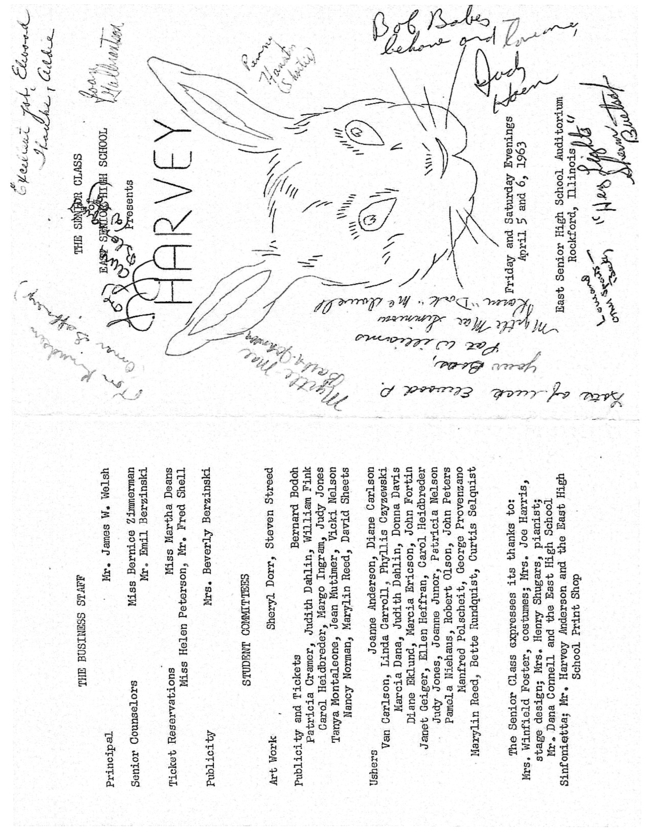 THE SENIOR CLASS
EAST SENIOR HIGH SCHOOL
Presents
HARVEY
Friday and Saturday Evenings
April 5 and 6, 1963
East Senior High School Auditorium
Rockford, Illinois
Bob Babes
behave and
Judy
Thanks, Addie
Myrtle Mae
Myrtle Mae
Pat Williams
your
Lots of luck Elwood P.
THE BUSINESS STAFF
Principal Mr. James W. Welsh
Senior Counselors Miss Bernice Zimmerman
Mr. Emil Berzinski
Ticket Reservations Miss Martha Deans
Miss Helen Peterson, Mr. Fred Shell
Publicity Mrs. Beverly Berzinski
STUDENT COMMITTEES
Art Work Sheryl Dorr, Steven Streed
Publicity and Tickets Bernard Bodoh
Patricia Cramer, Judith Dahlin, William Fink
Carol Heidbreder, Margo Ingram, Judy Jones
Tanya Montaleone, Jean Mutimer, Vicki Nelson
Nancy Norman, Marylin Reed, David Sheets
Ushers Joanne Anderson, Diane Carlson
Van Carlson, Linda Carroll, Phyllis Cayzewski
Marcia Dana, Judith Dahlin, Donna Davis
Diane Eklund, Marcia Ericson, John Fortin
Janet Geiger, Ellen Heffran, Carol Heidbreder
Judy Jones, Joanne Junor, Patricia Nelson
Pamela Nideaus, Robert Olson, John Peters
Manfred Polscheit, George Provenzano
Marylin Reed, Bette Rundquist, Curtis Selquist
The Senior Class expresses its thanks to:
Mrs. Winfield Foster, costumes; Mrs. Joe Harris,
stage design; Mrs. Henry Shugars, pianist;
Mr. Dana Connell and the East High School
Sinfonietta; Mr. Harvey Anderson and the East High
School Print Shop